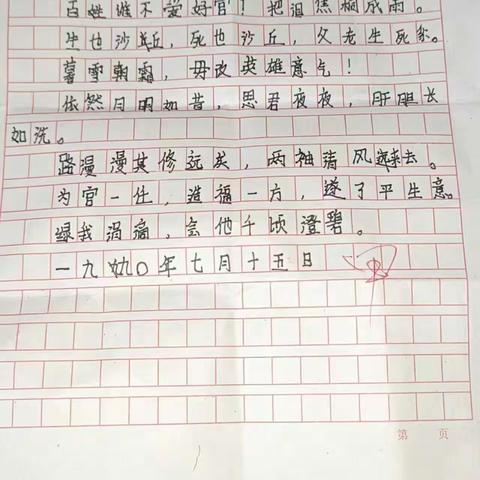 百姓谁不爱好官？把泪焦桐成雨。
生也沙丘，死也沙丘，父老生死系。
暮雪朝霜，毋改英雄意气！
依然月明如昔，思君夜夜，肝胆长
如洗。
路漫漫其修远矣，两袖清风来去。
为官一任，造福一方，遂了平生意。
绿我涓滴，会他千顷澄碧。
一九九〇年七月十五日
第 页